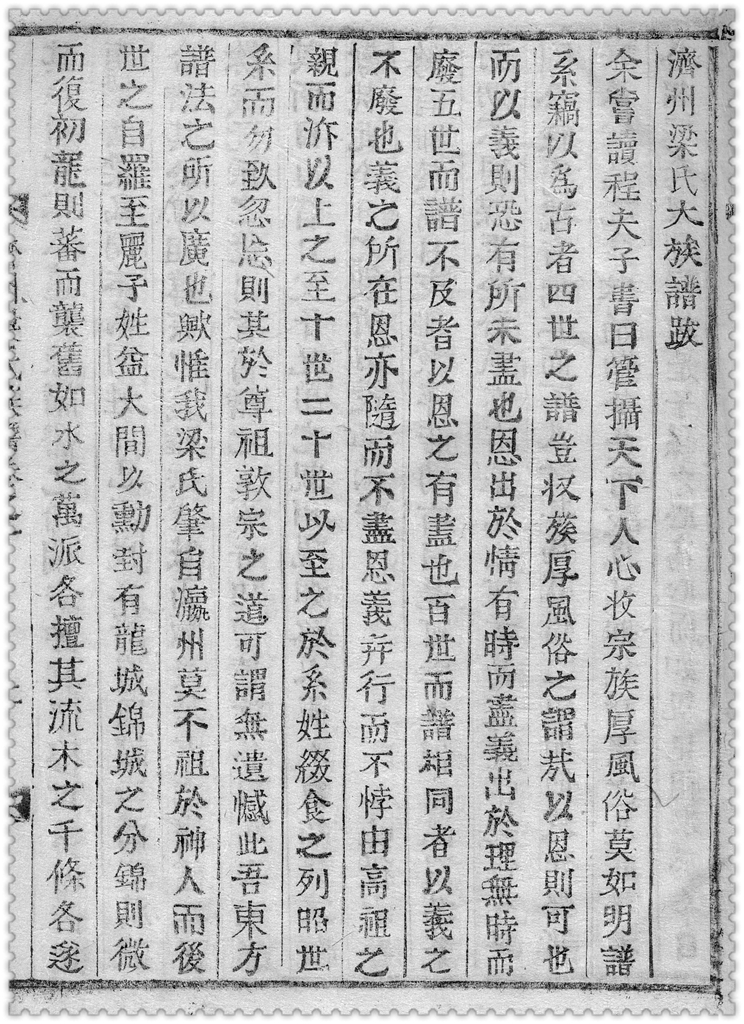 濟州梁氏大族譜跋
余嘗讀程夫子書曰管攝天下人心收宗族厚風俗莫如明譜
系竊以爲古者四世之譜豈收族厚風俗之謂㢤以恩則可也
而以義則恐有所未盡也恩出於情有時而盡義出於理無時而
廢五世而譜不及者以恩之有盡也百世而譜粗同者以義之
不廢也義之所在恩亦隨而不盡恩義并行而不悖由高祖之
親而泝以上之至十世二十世以至之於系姓綴食之列昭世
系而勿致忽忘則其於尊祖敦宗之道可謂無遺憾此吾東方
譜法之所以廣也歟惟我梁氏肇自瀛州莫不祖於神人而後
世之自羅至麗予姓益大間以勳封有龍城錦城之分錦則微
而復初龍則蕃而襲舊如水之萬派各擅其流木之千條各遂